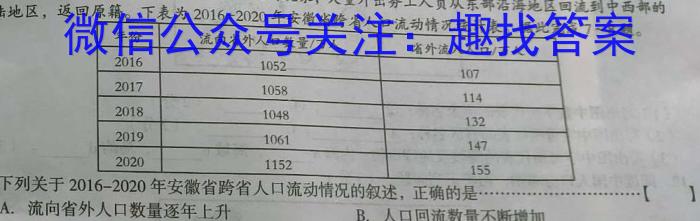 陆地区，返回原籍。下表为2016-2020年安徽省跨省人口流动情况
微信公众号关注：趣找答案
2016 1052 107
2017 1058 114
2018 1048 132
2019 1061 147
2020 1152 155
下列关于2016-2020年安徽省跨省人口流动情况的叙述，正确的是……………………【 】
A. 流向省外人口数量逐年上升 B. 人口回流数量不断增加